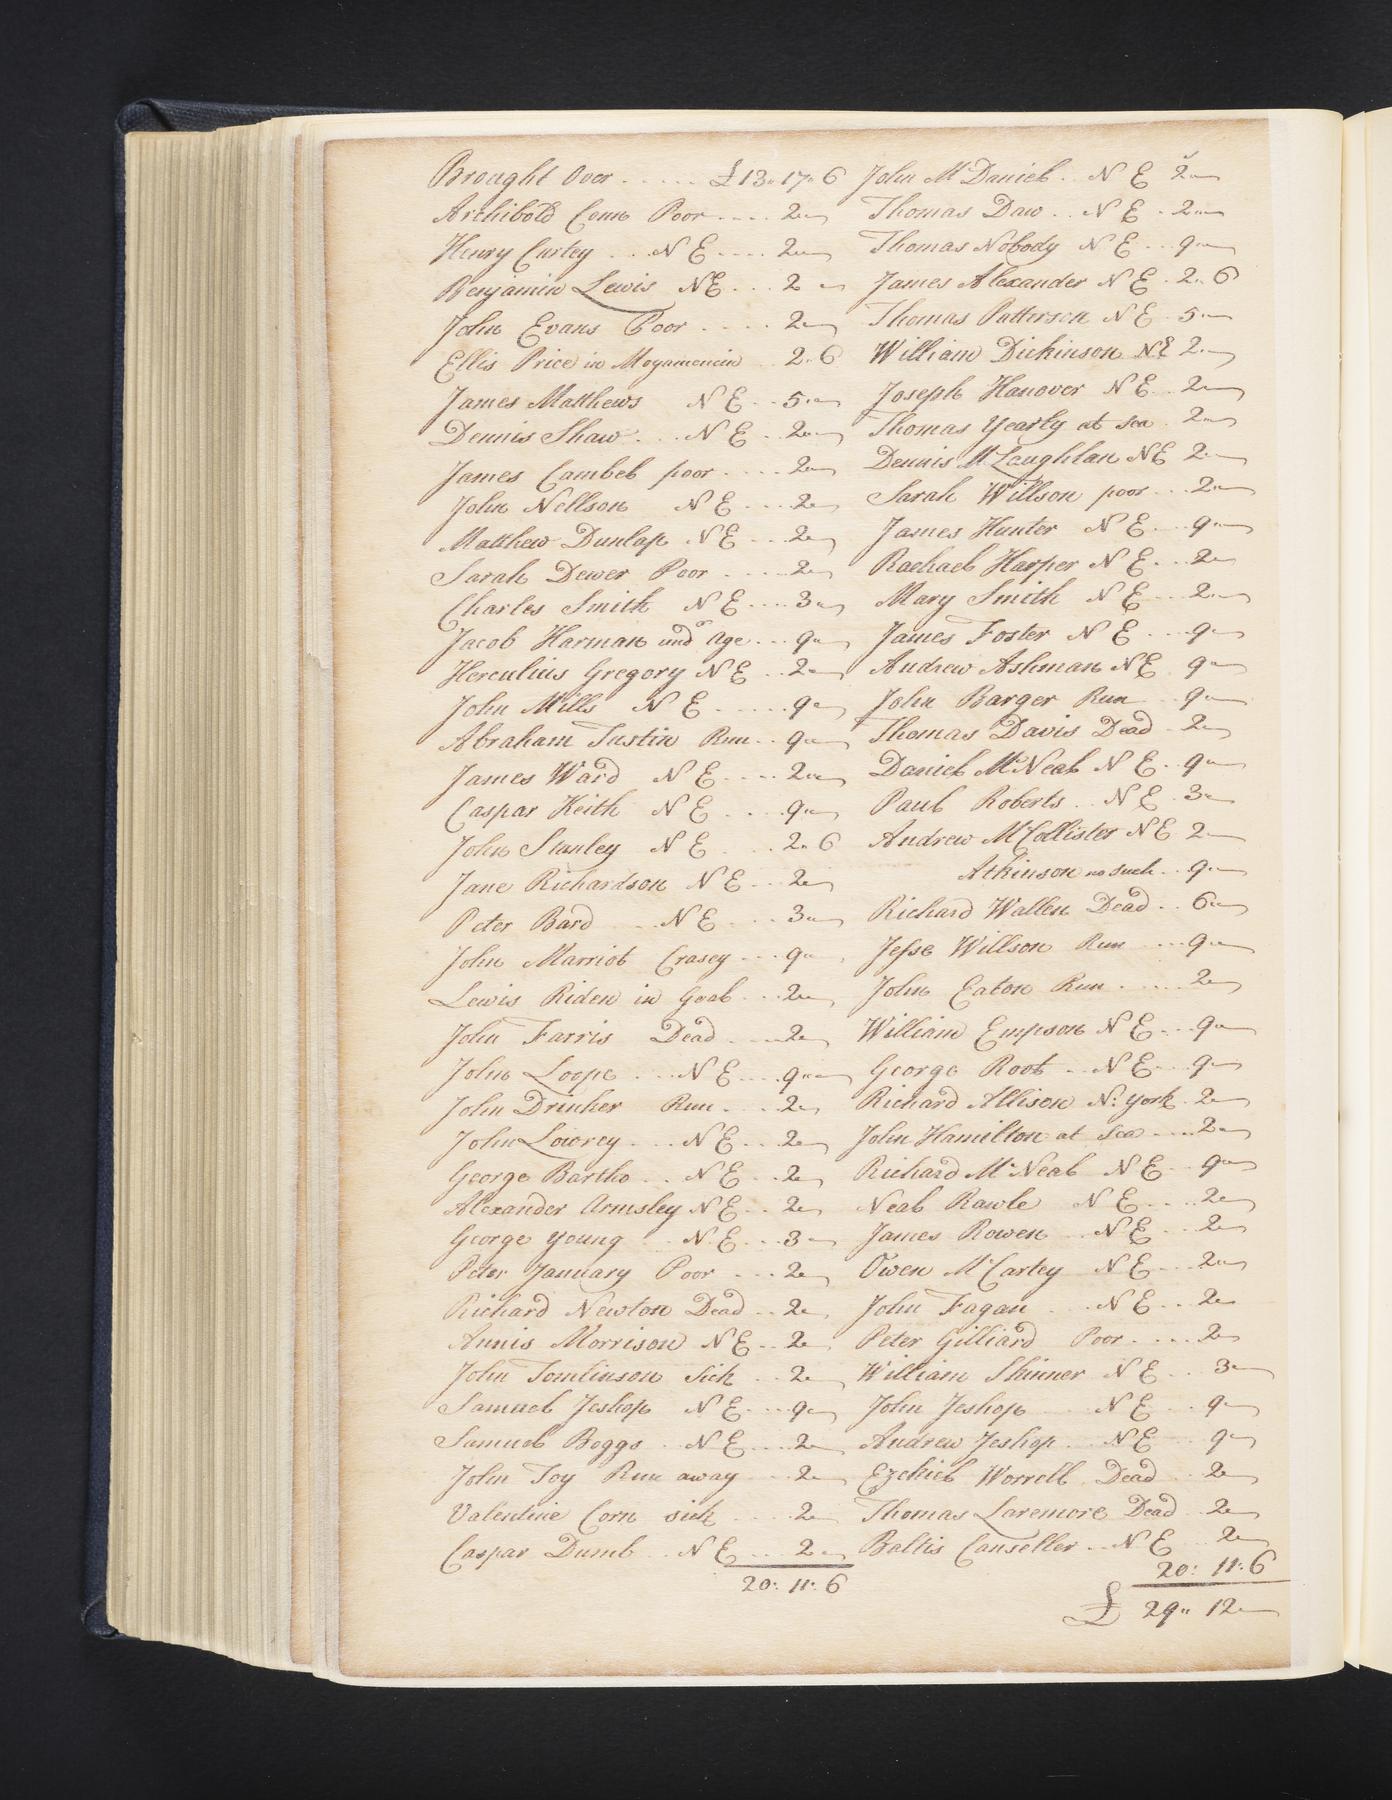 Brought Over ...... £13„17„6
Archibold Poor .... 2„
Henry Curtey ... N E .... 2„
Benjamin Lewis N E ... 2„
John Evans Poor ..... 2„
Ellis Price in Moyamencin .. 2„6
James Matthews N E .. 5„
Dennis Shaw ... N E .. 2„
James Cambel poor ..... 2„
John Nellson N E ..... 2„
Matthew Dunlap N E ... 2„
Sarah Dewer Poor ..... 2„
Charles Smith N E .... 3„
Jacob Harman undr Age ... 9„
Herculius Gregory N E .. 2„
John Mills N E ...... 9„
Abraham Tustin Run .. 9„
James Ward N E ..... 2„
Caspar Keith N E .... 9„
John Stanley N E .... 2„6
Jane Richardson N E ... 2„
Peter Bard ... N E .... 3„
John Marriot Crasey .... 9„
Lewis Riden in Goal ... 2„
John Farris Dead .... 2„
John Loope ... N E .... 9„
John Drinker Run .... 2„
John Lowrey .... N E ... 2„
George Bartho .. N E .. 2„
Alexander Armsley N E .. 2„
George Young .. N E ... 3„
Peter January Poor ... 2„
Richard Newton Dead .. 2„
Annis Morrison N E .. 2„
John Tomlinson Sick ... 2„
Samuel Jeshop N E .... 9„
Samuel Boggs .. N E .... 2„
John Toy Run away ... 2„
Valentine Corn sick ..... 2„
Caspar Dumb .. N E ... 2„
20: 11: 6
John McDaniel . N E 2s„
Thomas Daw .. N E . 2„
Thomas Nobody N E ... 9„
James Alexander N E . 2„6
Thomas Patterson N E . 5„
William Dickinson N E 2„
Joseph Hanover N E .. 2„
Thomas Yearly at sea . 2„
Dennis McLaughlan N E 2„
Sarah Willson poor ... 2„
James Hunter N E ... 9„
Rachael Harper N E ... 2„
Mary Smith N E .... 2„
James Foster N E .... 9„
Andrew Ashman N E . 9„
John Barger Run ... 9„
Thomas Davis Dead .. 2„
Daniel McNeal N E .. 9„
Paul Roberts .. N E . 3„
Andrew McCollister N E 2„
Atkinson no such .. 9„
Richard Wallen Dead .. 6„
Jesse Willson Run .... 9„
John Eaton Run ...... 2„
William Empson N E ... 9„
George Root .. N E ... 9„
Richard Allison N: York . 2„
John Hamilton at Sea .... 2„
Richard McNeal N E .. 9„
Neal Rawle N E ..... 2„
James Rowen .. N E ... 2„
Owen McCartey N E .... 2„
John Fagan .... N E ... 2„
Peter Gilliard Poor .... 2„
William Skinner N E ... 3„
John Jeshop .... N E ... 9„
Andrew Jeshop .. N E ... 9„
Ezekiel Worrell Dead .. 2„
Thomas Laremore Dead .. 2„
Baltis Canseller .. N E .. 2„
20: 11: 6
£ 29„ 12„